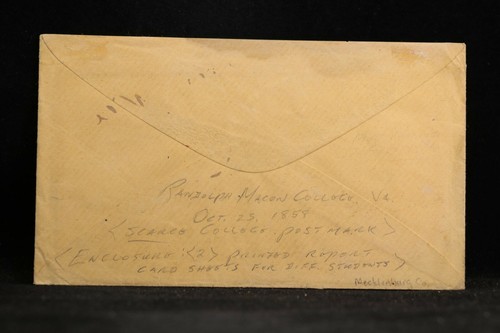 Randolph Macon College, Va
Oct. 25, 1858
<Scarce College Postmark>
<Enclosure: <2> printed report
card sheets for diff students>
Mecklenburg Co.